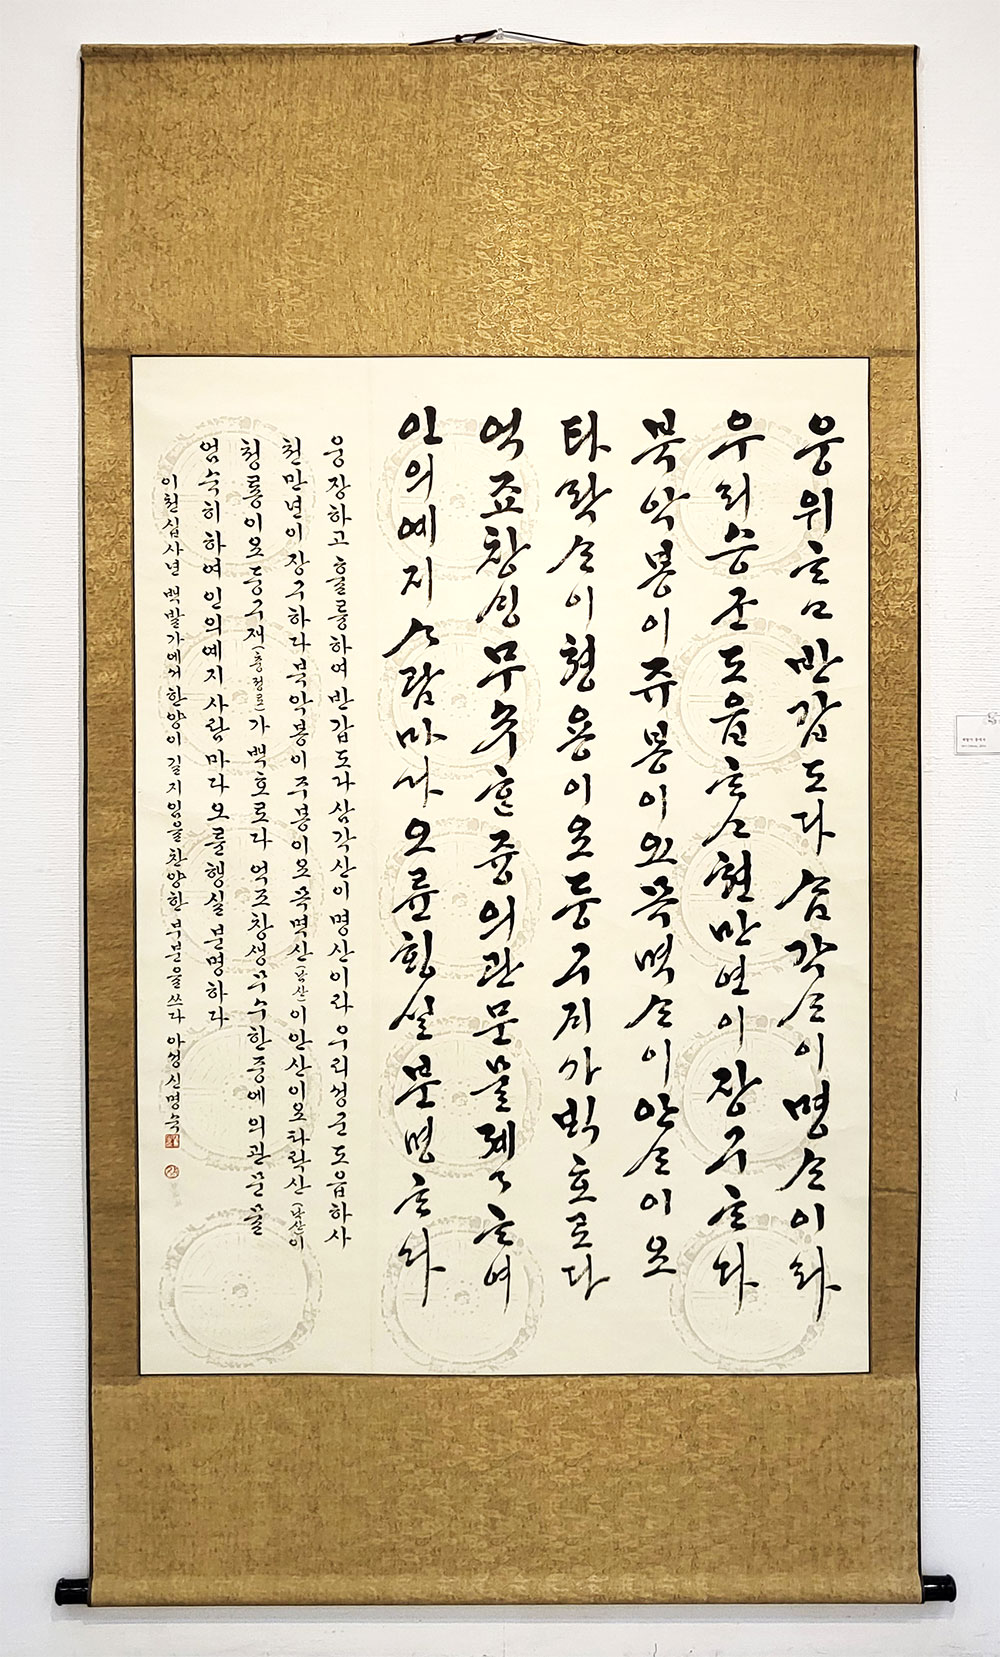 웅위ᄒᆞᆷ반갑도다ᄉᆞᆷ각ᄉᆞᆫ이명ᄉᆞᆫ이라
우리승군도읍ᄒᆞᄉᆞ쳔만연이장구ᄒᆞ다
북악봉이쥬봉이요목멱ᄉᆞᆫ이안ᄉᆞᆫ이오
타락ᄉᆞᆫ이쳥용이오둥구ᄌᆡ가ᄇᆡᆨ호로다
억죠창ᄉᆡᆼ무수ᄒᆞᆫ즁의관문물졔〻ᄒᆞ여
인의예지ᄉᆞ람마다오륜ᄒᆡᆼ실분명ᄒᆞ다
웅장하고훌륭하여반갑도다삼각산이명산이라우리성군도읍하사
천만년이장구하다북악봉이주봉이오목멱산(남산)이안산이오타락산(낙산)이
청룡이오둥구재(충정로)가백호로다억조창생무수한중에의관문물
엄숙히하여인의예지사람마다오륜행실분명하다
이천십사년백발가에서한양이길지임을찬양한부분을쓰다아정신명숙